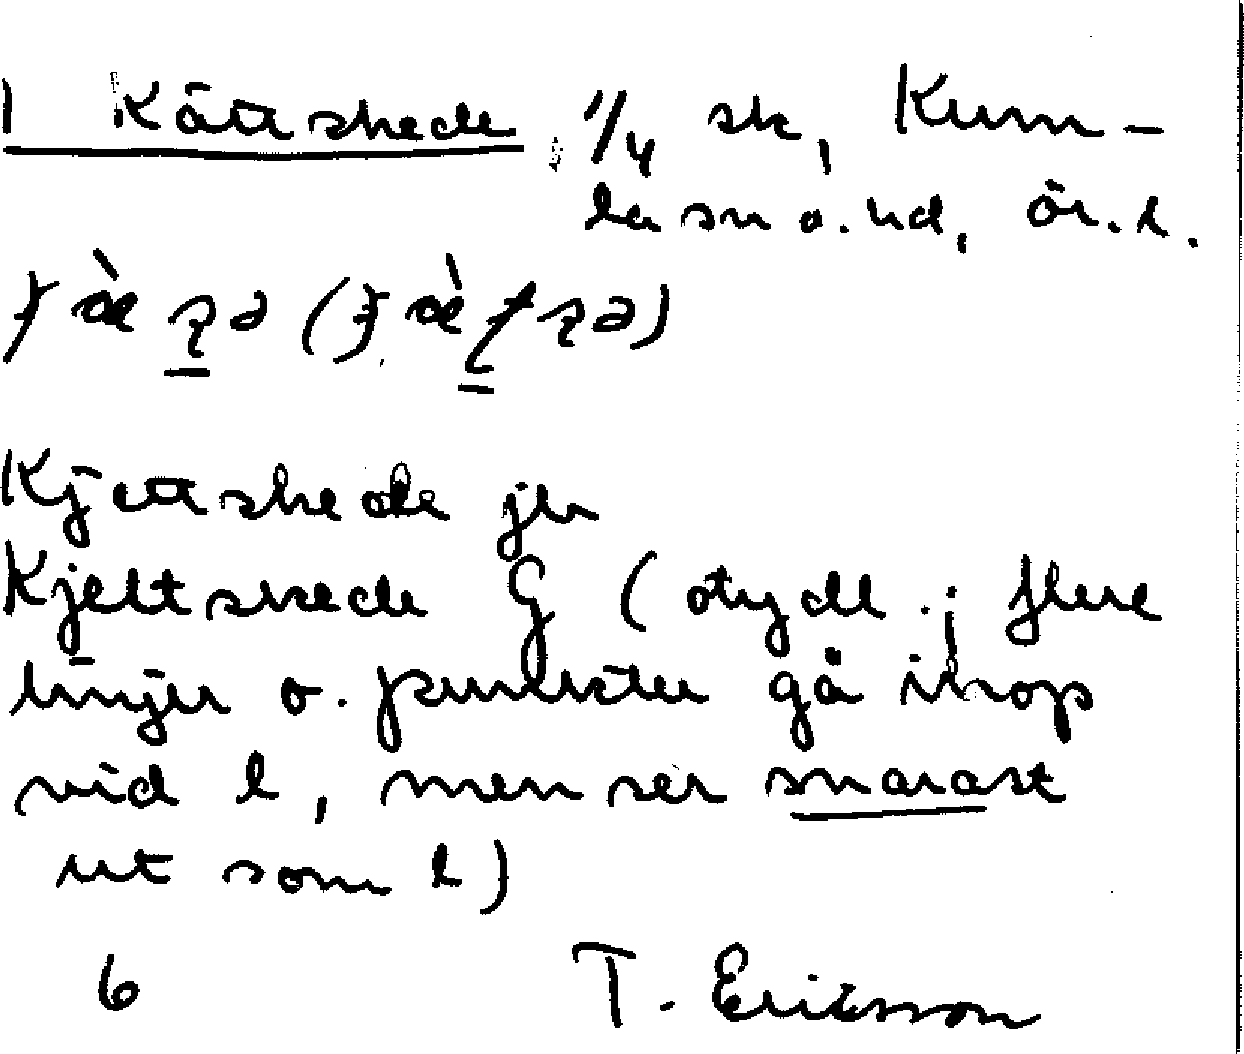 1 Kättskede, 1/4 sk, Kum-
la sn o. hd, Ör. l.
Kjettskede jb
Kjeltskede G (otydl.; flere
linjer o. punkter gå ihop
vid l, men ser snarast
ut som l)
6 T. Ericsson